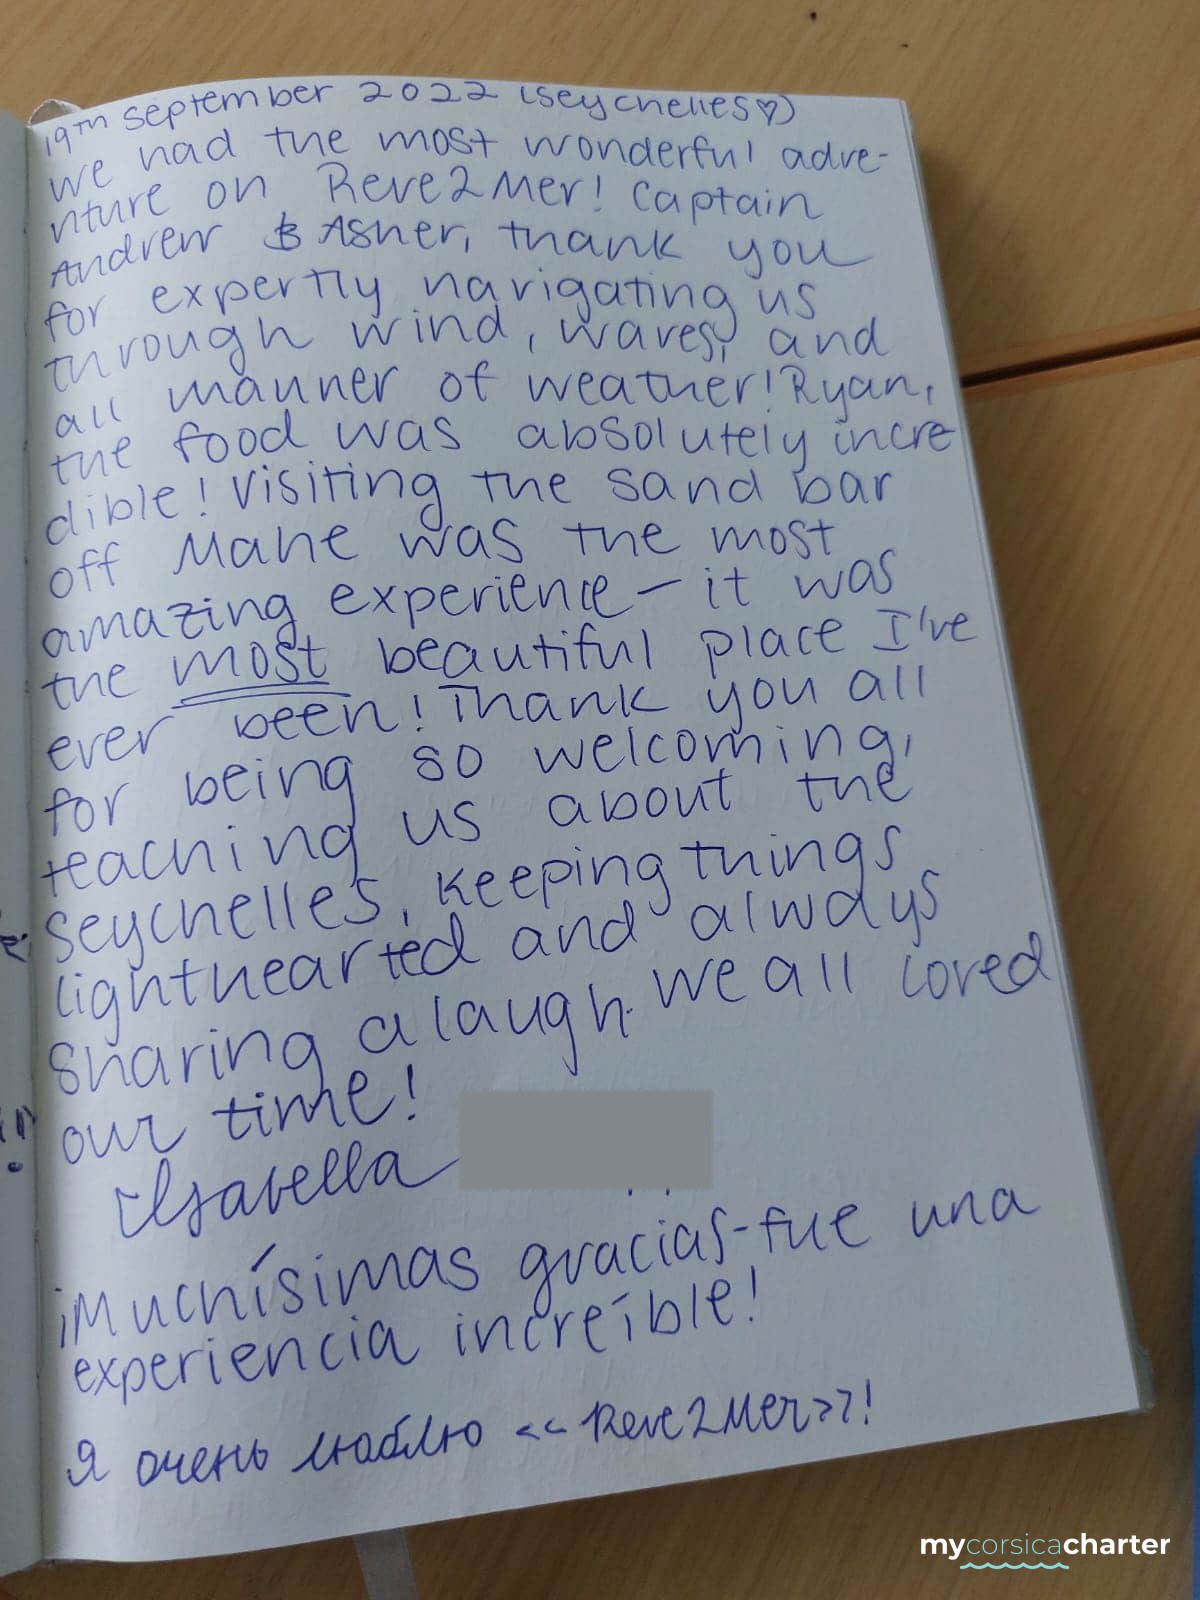 19TH September 2022 (Seychelles♡)
We had the most wonderful adve-
nture on Reve2Mer! Captain
Andrew & Asher, thank you
for expertly navigating us
through wind, waves, and
all manner of weather! Ryan,
the food was absolutely incre
dible! Visiting the sand bar
off Mahe was the most
amazing experience - it was
the most beautiful place I've
ever been! Thank you all
for being so welcoming,
teaching us about the
Seychelles, keeping things
lighthearted and always
sharing a laugh. We all loved
our time!
Isabella
¡Muchísimas gracias - fue una
experiencia increíble!
Я очень люблю << Reve2Mer>>!
mycorsicacharter